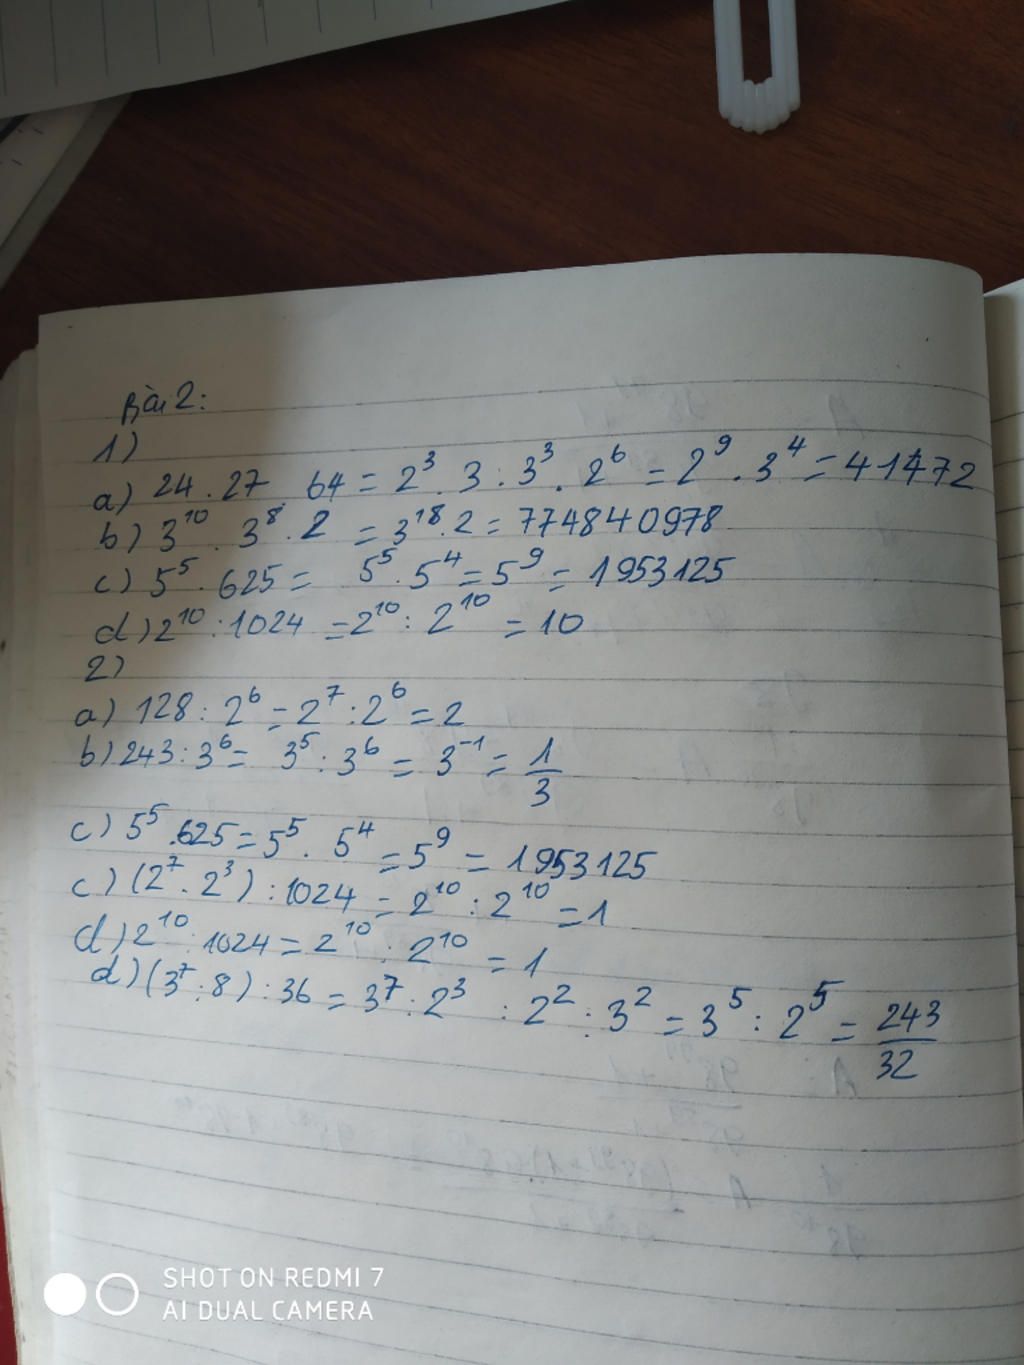 Bài 2:
1)
a) 24 . 27 . 64 = 2³ . 3 . 3³ . 2⁶ = 2⁹ . 3⁴ = 41472
b) 3¹⁰ . 3⁸ . 2 = 3¹⁸ . 2 = 774840978
c) 5⁵ . 625 = 5⁵ . 5⁴ = 5⁹ = 1953125
d) 2¹⁰ : 1024 = 2¹⁰ : 2¹⁰ = 10
2)
a) 128 : 2⁶ = 2⁷ : 2⁶ = 2
b) 243 : 3⁶ = 3⁵ : 3⁶ = 3⁻¹ = 1/3
c) 5⁵ . 625 = 5⁵ . 5⁴ = 5⁹ = 1953125
c) (2⁷ . 2³) : 1024 = 2¹⁰ : 2¹⁰ = 1
d) 2¹⁰ : 1024 = 2¹⁰ : 2¹⁰ = 1
d) (3⁷ : 8) : 36 = 3⁷ : 2³ : 2² : 3² = 3⁵ : 2⁵ = 243/32
SHOT ON REDMI 7
AI DUAL CAMERA